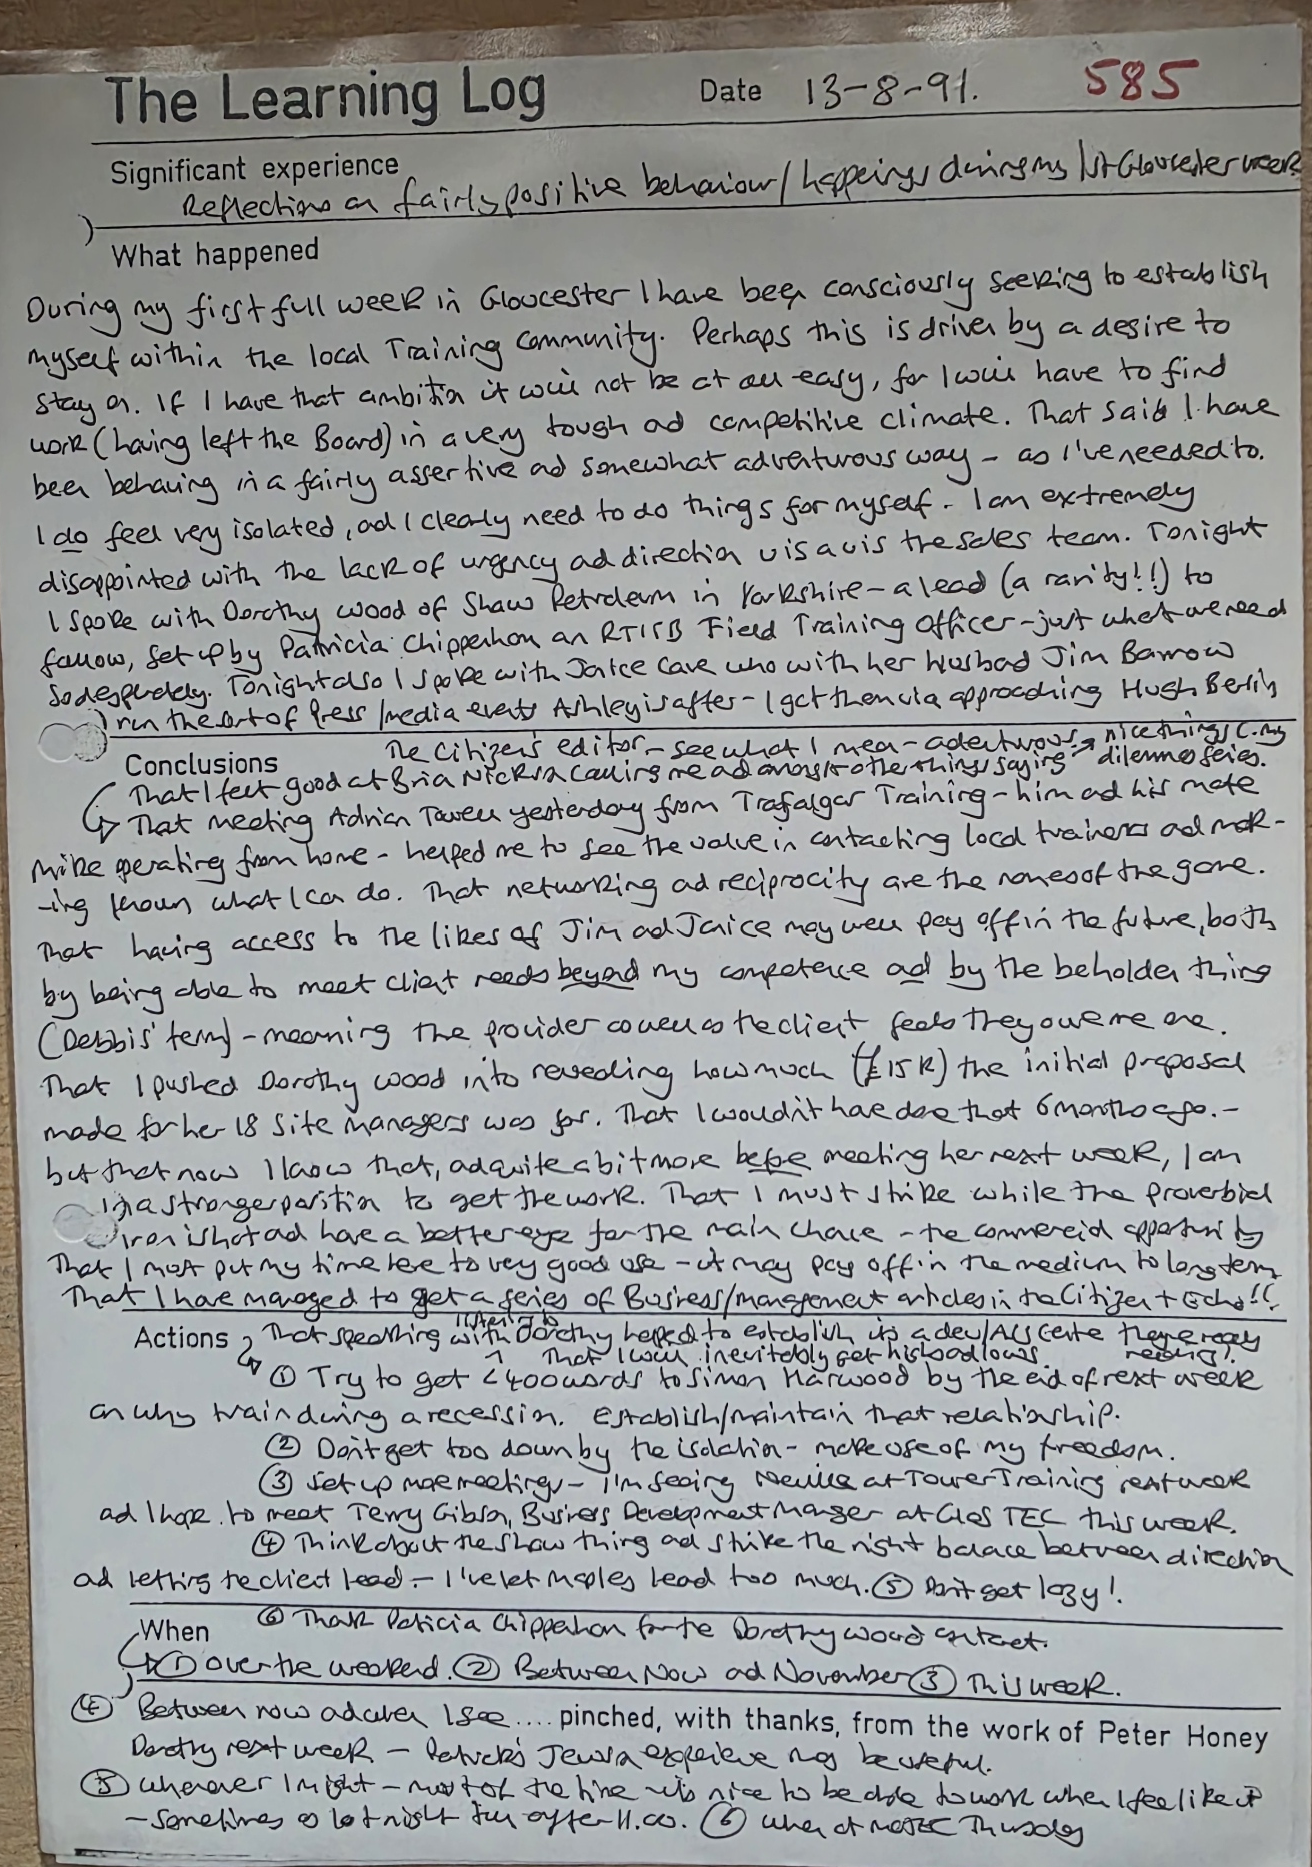 The Learning Log Date 13-8-91. 585
Significant experience
Reflections on fairly positive behaviour/happenings during my 1st Gloucester week
What happened
During my first full week in Gloucester I have been consciously seeking to establish
myself within the local Training Community. Perhaps this is driven by a desire to
stay on. If I have that ambition it will not be at all easy, for I will have to find
work (having left the Board) in a very tough and competitive climate. That said I have
been behaving in a fairly assertive and somewhat adventurous way - as I've needed to.
I do feel very isolated, and I clearly need to do things for myself. I am extremely
disappointed with the lack of urgency and direction vis a vis the sales team. Tonight
I spoke with Dorothy Wood of Shaw Petroleum in Yorkshire - a lead (a rarity!!) to
follow, set up by Patricia Chippenham an RTITB Field Training Officer - just what we need
so desperately. Tonight also I spoke with Janice Cave who with her husband Jim Barrow
run the sort of Press/media events Ashley is after - I got them via approaching Hugh Berlin
The Citizen's editor - see what I mean - adventurous
Conclusions nice things c. my
That I feel good at Brian Nickson calling me and amongst other things saying dilemma series.
That meeting Adrian Towell yesterday from Trafalgar Training - him and his mate
Mike operating from home - helped me to see the value in contacting local trainers and mak-
-ing known what I can do. That networking and reciprocity are the names of the game.
That having access to the likes of Jim and Janice may well pay off in the future, both
by being able to meet client needs beyond my competence and by the beholden thing
(Debbis' term) - meaning the provider so the client feels they owe me one.
That I pushed Dorothy Wood into revealing how much (£15K) the initial proposal
made for her 18 Site Managers was for. That I wouldn't have done that 6 months ago. -
but that now I know that, and quite a bit more before meeting her next week, I am
in a stronger position to get the work. That I must strike while the proverbial
iron is hot and have a better eye for the main chance - the commercial opportunity
That I must put my time here to very good use - it may pay off in the medium to long term
That I have managed to get a series of Business/management articles in the Citizen + Echo!!
listening to
Actions That speaking with Dorothy helped to establish its a dev/ACS Centre they're really
That I will inevitably get highs and lows. needing!!
① Try to get <400 words to Simon Harwood by the end of next week
on why train during a recession. Establish/maintain that relationship.
② Don't get too down by the isolation - make use of my freedom.
③ Set up more meetings - I'm seeing Neville at Tower Training next week
and I hope to meet Terry Gibson, Business Development Manager at Glos TEC this week.
④ Think about the Shaw thing and strike the right balance between direction
and letting the client lead - I've let Maples lead too much. ⑤ Don't get lazy!
⑥ Thank Patricia Chippenham for the Dorothy Wood contact.
When
① Over the weekend. ② Between Now and November ③ This week.
④ Between now and when I see .... pinched, with thanks, from the work of Peter Honey
Dorothy next week - Patrick's experience may be useful.
⑤ Whenever I might - most of the time it's nice to be able to work when I feel like it
- sometimes as late night after 11.00. ⑥ When at Thursday